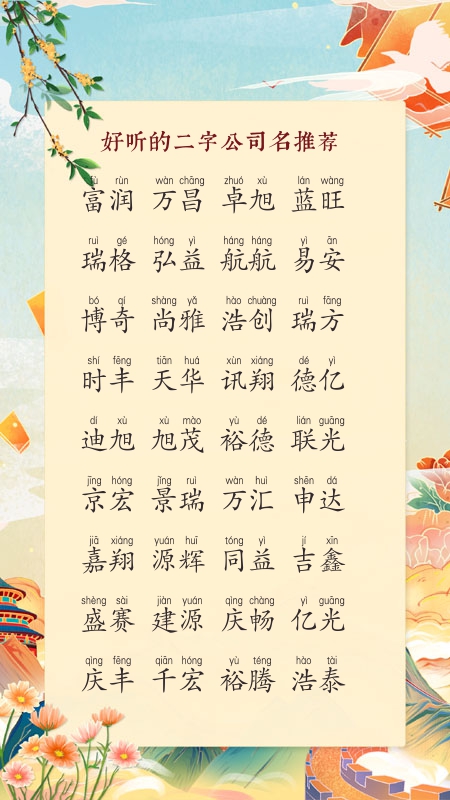 好听的二字公司名推荐
fù rùn wàn chāng zhuó xù lán wàng
富润 万昌 卓旭 蓝旺
ruì gé hóng yì háng háng yì ān
瑞格 弘益 航航 易安
bó qí shàng yǎ hào chuàng ruì fāng
博奇 尚雅 浩创 瑞方
shí fēng tiān huá xùn xiáng dé yì
时丰 天华 讯翔 德亿
dí xù xù mào yù dé lián guāng
迪旭 旭茂 裕德 联光
jīng hóng jǐng ruì wàn huì shēn dá
京宏 景瑞 万汇 申达
jiā xiáng yuán huī tóng yì jí xīn
嘉翔 源辉 同益 吉鑫
shèng sài jiàn yuán qìng chàng yì guāng
盛赛 建源 庆畅 亿光
qìng fēng qiān hóng yù téng hào tài
庆丰 千宏 裕腾 浩泰